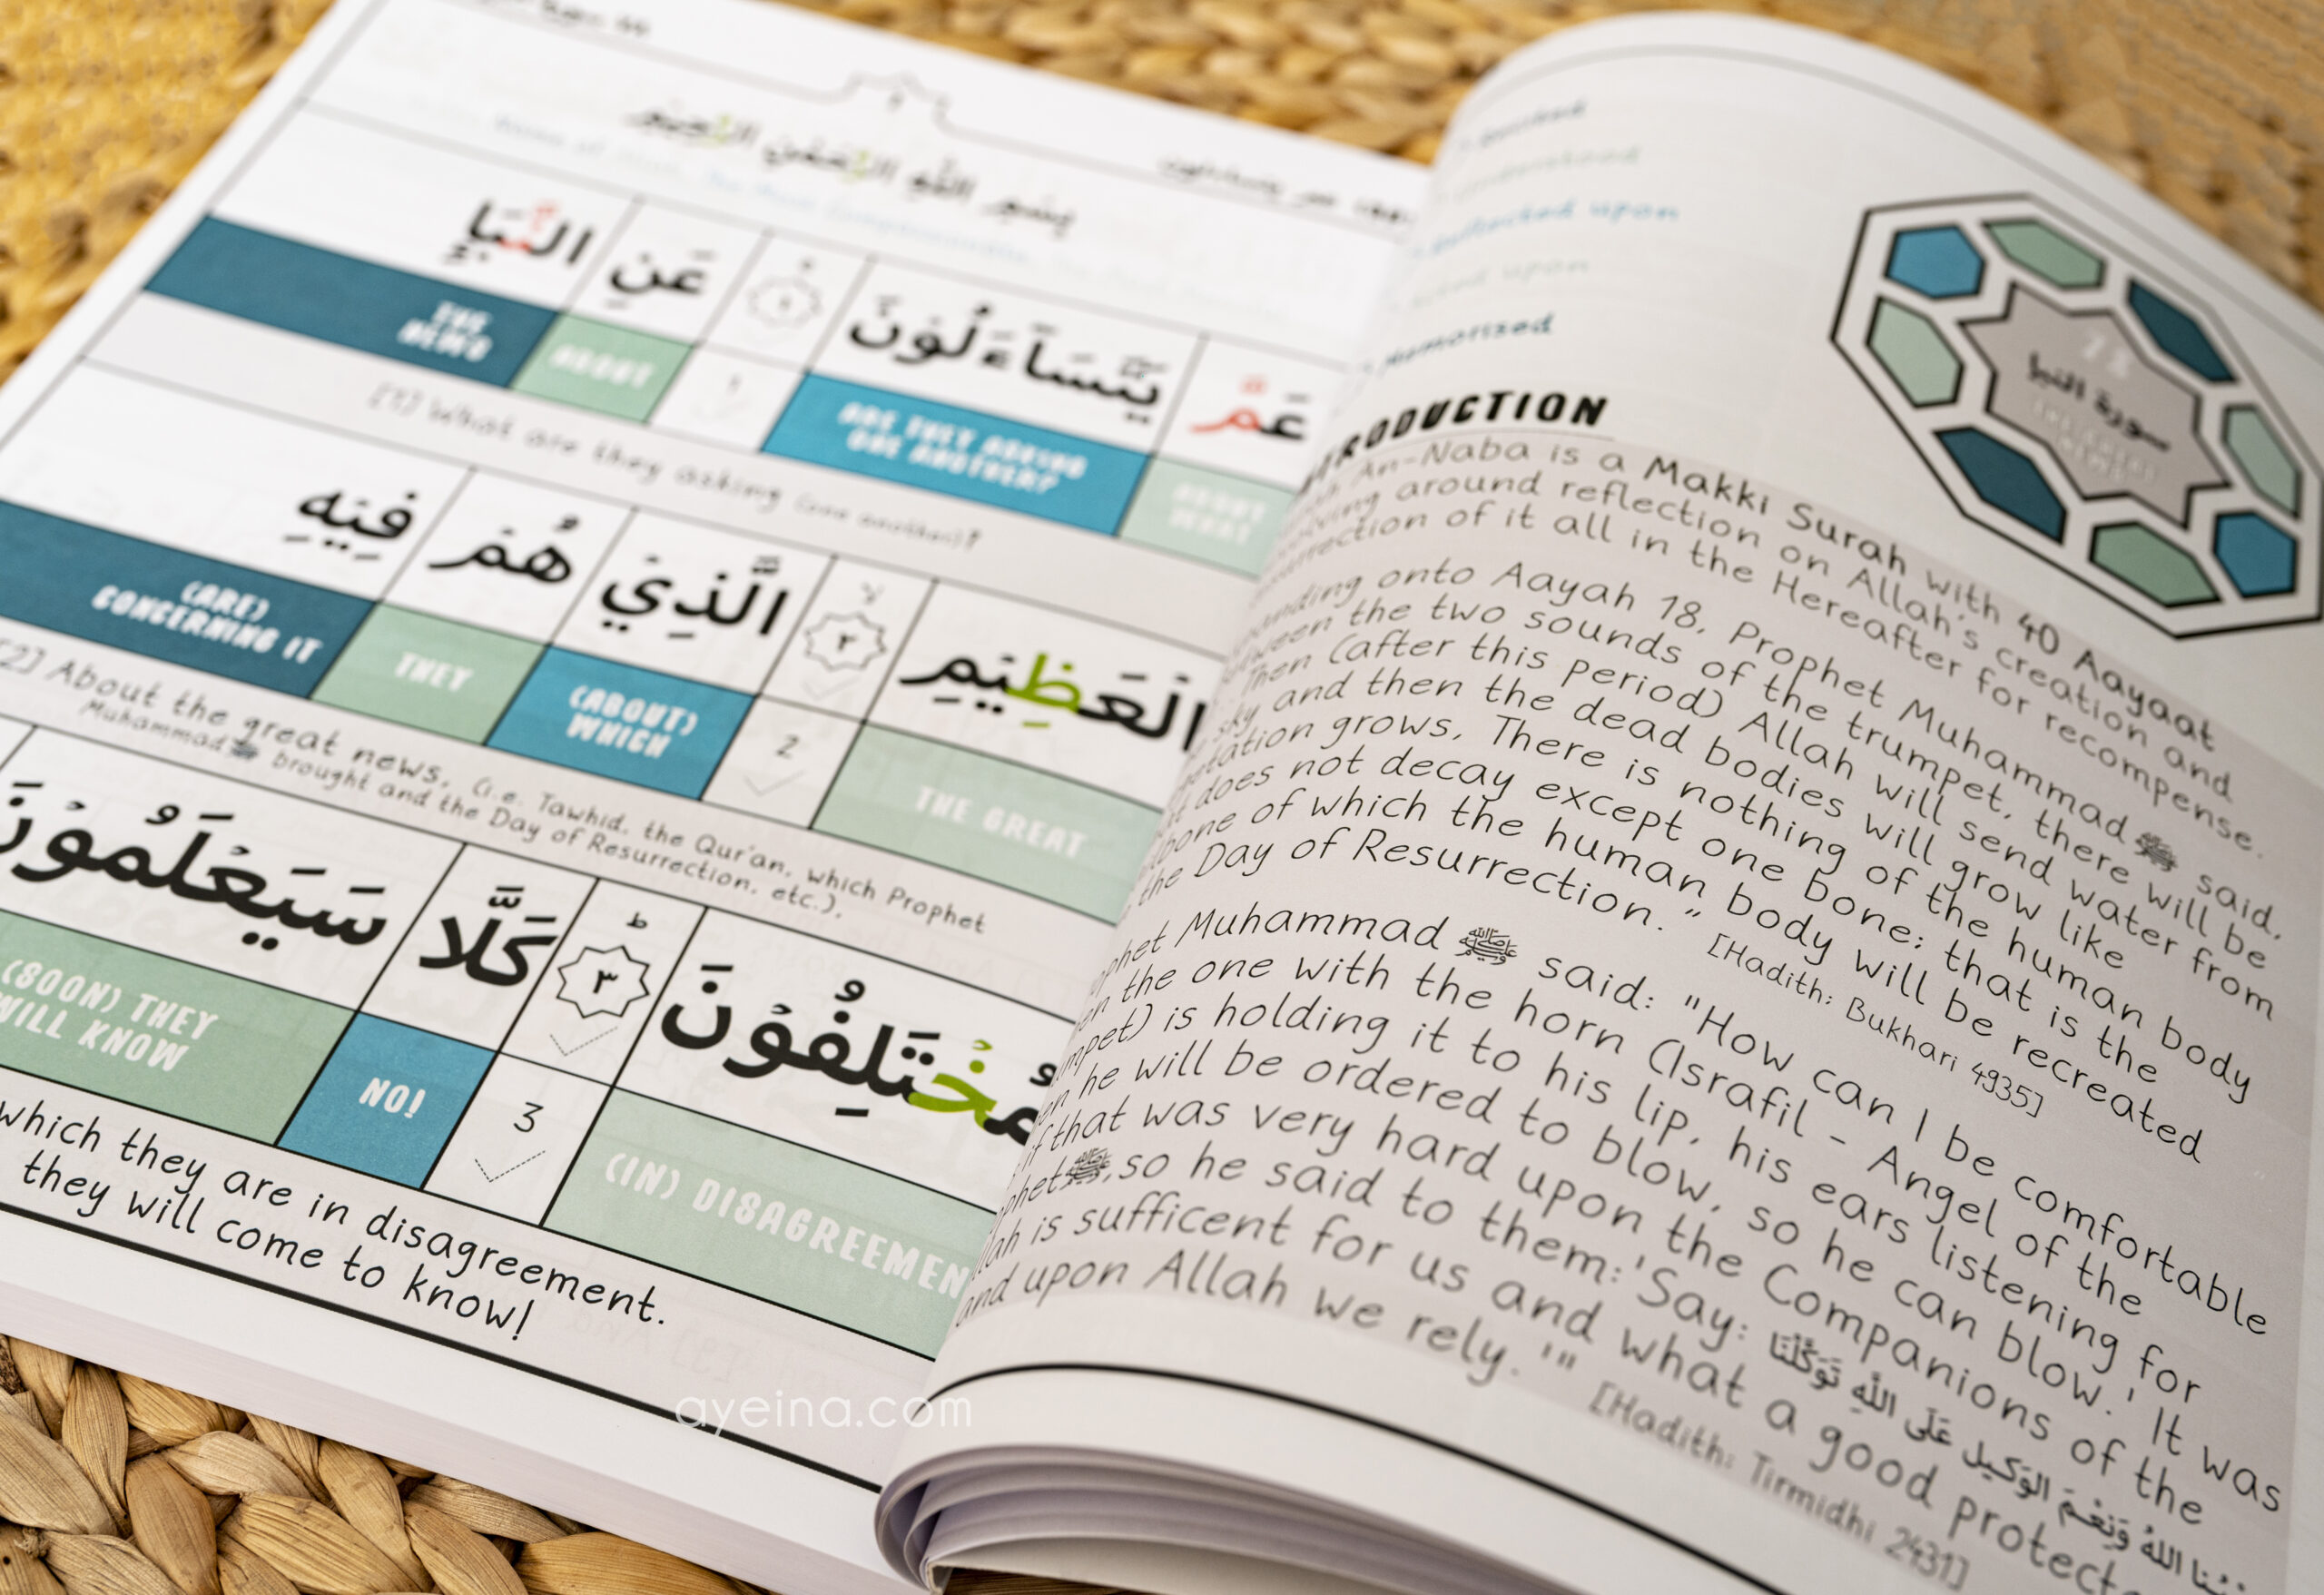 بِسْمِ اللَّهِ الرَّحْمَٰنِ الرَّحِيمِ
عَمَّ يَتَسَآءَلُوْنَ ١ عَنِ النَّبَإِ
ABOUT WHAT ARE THEY ASKING ONE ANOTHER? 1 ABOUT THE NEWS
[1] What are they asking (one another)?
الْعَظِيْمِ ٢ الَّذِيْ هُمْ فِيْهِ
THE GREAT 2 (ABOUT) WHICH THEY (ARE) CONCERNING IT
[2] About the great news, (i.e. Tawhid, the Qur'an, which Prophet
Muhammad ﷺ brought and the Day of Resurrection, etc.),
مُخْتَلِفُوْنَ ٣ كَلَّا سَيَعْلَمُوْنَ
(IN) DISAGREEMEN 3 NO! (SOON) THEY WILL KNOW
which they are in disagreement.
they will come to know!
Reflected upon
Memorized
سورة النبإ
RODUCTION
An-Naba is a Makki Surah with 40 Aayaat
around reflection on Allah's creation and
of it all in the Hereafter for recompense.
onto Aayah 18, Prophet Muhammad ﷺ said,
the two sounds of the trumpet, there will be
Then (after this period) Allah will send water from
sky and then the dead bodies will grow like
grows, There is nothing of the human body
does not decay except one bone; that is the
bone of which the human body will be recreated
the Day of Resurrection." [Hadith: Bukhari 4935]
Muhammad ﷺ said: "How can I be comfortable
the one with the horn (Israfil - Angel of the
is holding it to his lip, his ears listening for
he will be ordered to blow, so he can blow.' It was
if that was very hard upon the Companions of the
ﷺ, so he said to them: 'Say: حَسْبُنَا اللهُ وَنِعْمَ الْوَكِيلُ عَلَى اللهِ تَوَكَّلْنَا
is sufficent for us and what a good protect
and upon Allah we rely.'" [Hadith: Tirmidhi 2431]
ayeina.com